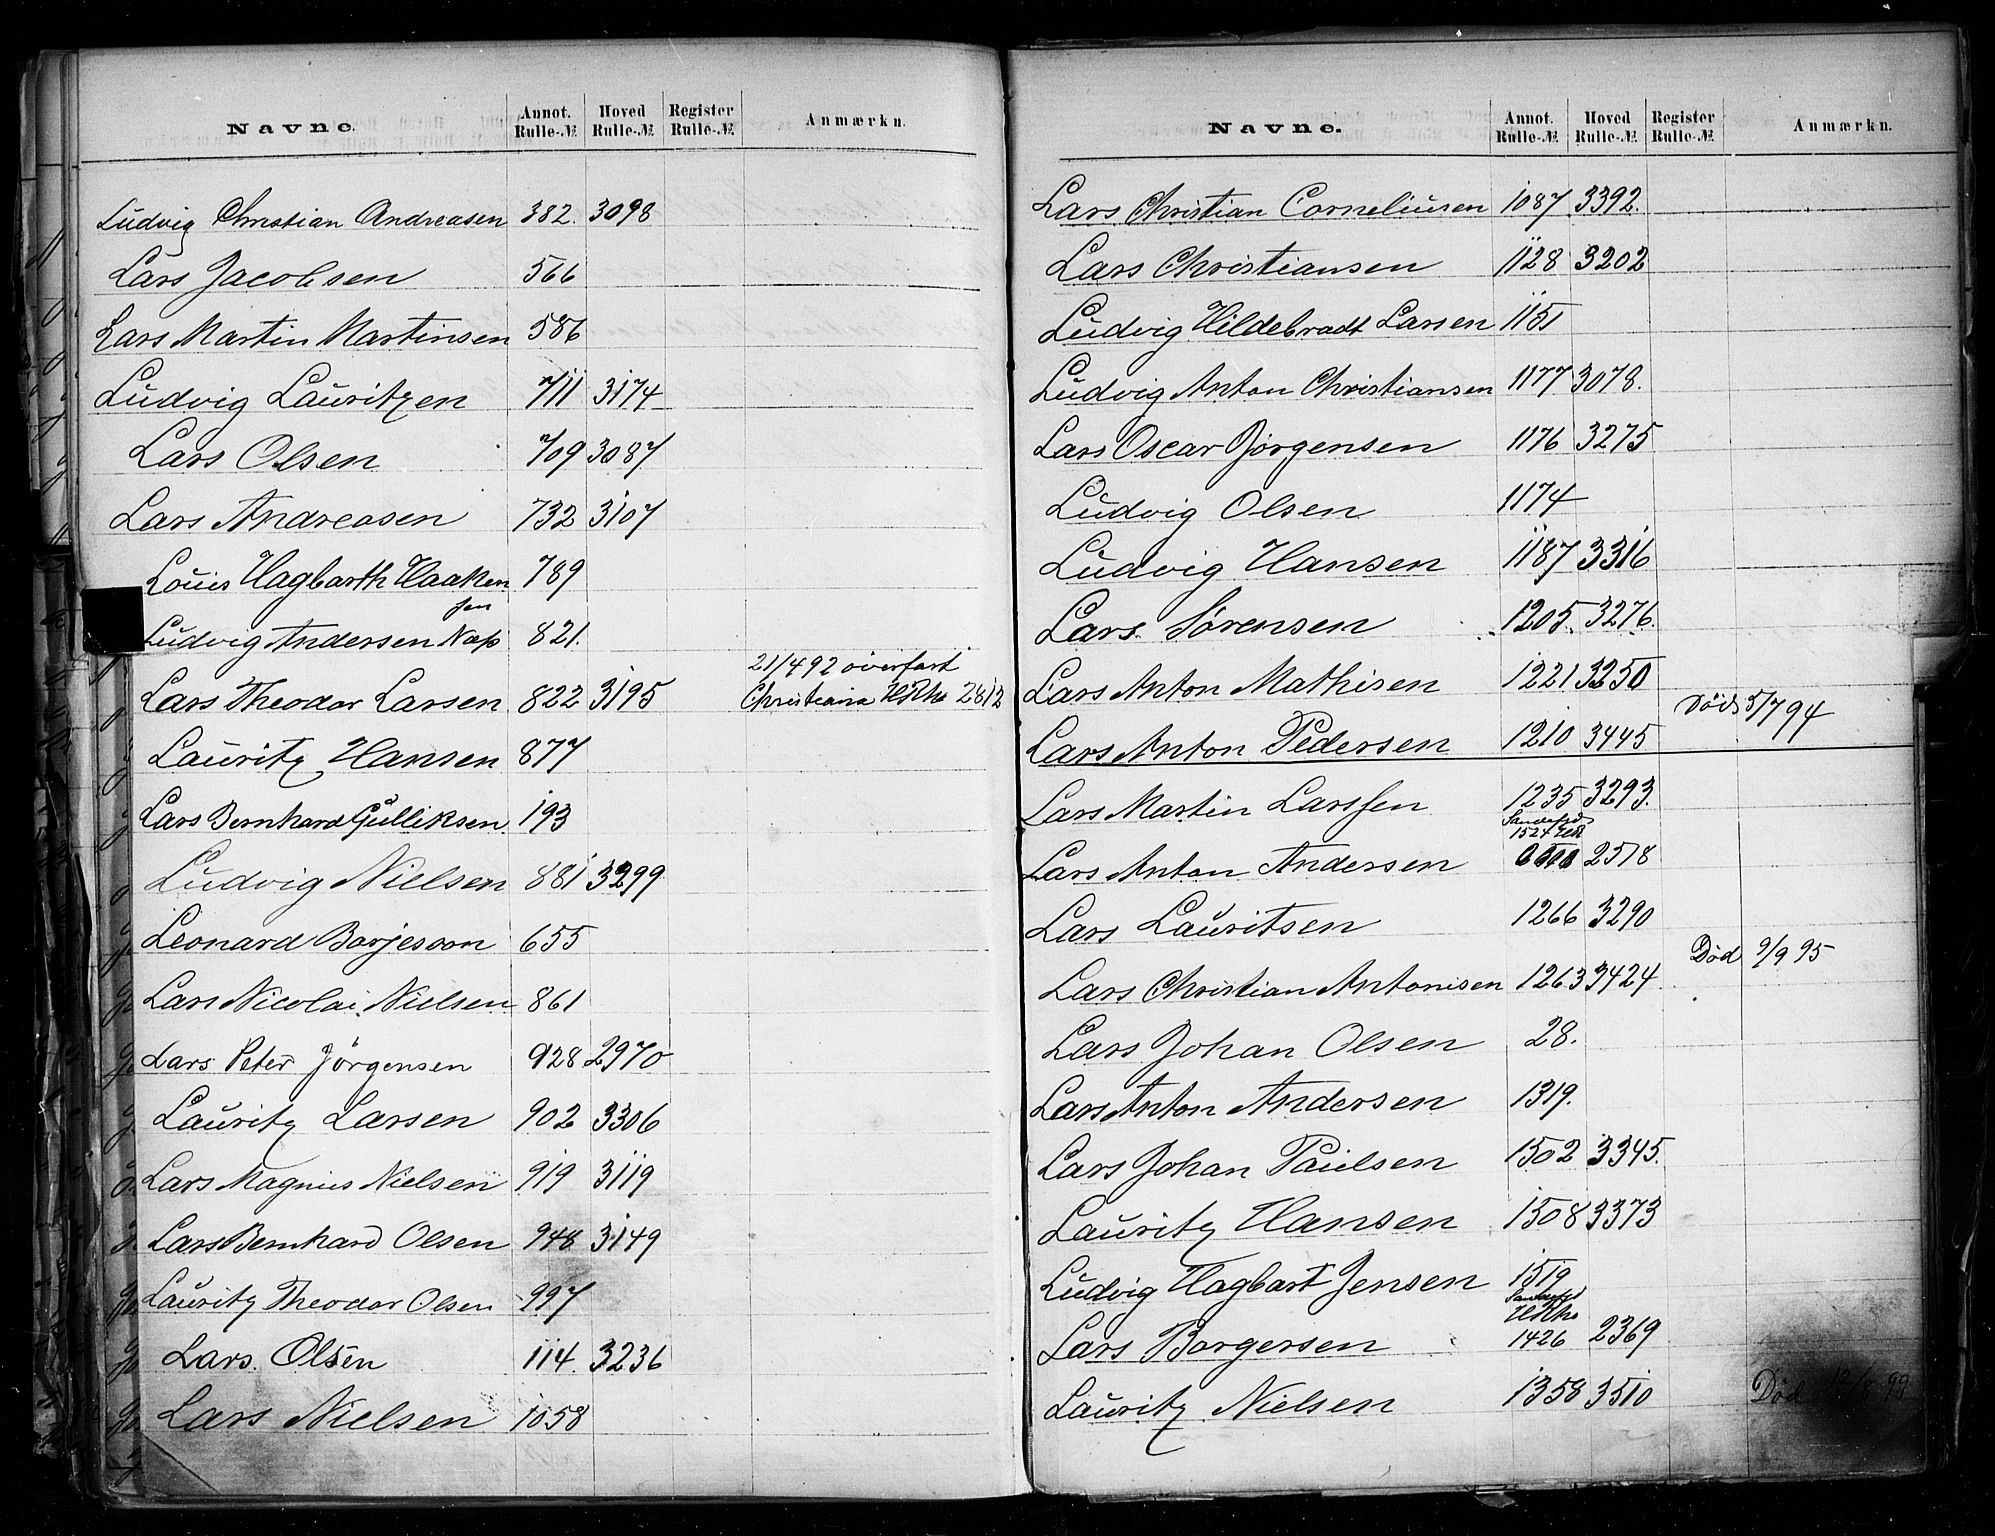 Navne. Annot. Rulle-№ Hoved Rulle-№ Register Rulle-№ Anmærkn.
Ludvig Christian Andreasen 382. 3098
Lars Jacobsen 566
Lars Martin Martinsen 586
Ludvig Lauritzen 711 3174
Lars Olsen 709 3087
Lars Andreasen 732 3107
Louis Hagbarth Haaken 789
sen
Ludvig Andersen Næs 821.
21/4 92 överfört
Lars Theodor Larsen 822 3195 Christiania HRno 2812
Lauritz Hansen 877
Lars Bernhard Gulliksen 193
Ludvig Nielsen 881 3299
Leonard Borjeson 655
Lars Nicolai Nielsen 861
Lars Peter Jörgensen 928 2970
Lauritz Larsen 902 3306
Lars Magnus Nielsen 919 3119
Lars Bernhard Olsen 948 3149
Lauritz Theodor Olsen 997
Lars Olsen 114. 3236
Lars Nielsen 1058
Navne. Annot. Rulle-№ Hoved Rulle-№ Register Rulle-№ Anmærkn.
Lars Christian Corneliusen 1087 3392.
Lars Christiansen 1128 3202
Ludvig Hildebradt Larsen 1151
Ludvig Anton Christiansen 1177 3078.
Lars Oscar Jørgensen 1176 3275
Ludvig Olsen 1174
Ludvig Hansen 1187 3316
Lars Sørensen 1205. 3276.
Lars Anton Mathisen 1221 3250
Død 5/7 94
Lars Anton Pedersen 1210 3445
Lars Martin Larssen 1235 3293.
Sandefjd
1524
Lars Anton Andersen 2518
Lars Lauritsen 1266 3290
Død 9/9 95
Lars Christian Antonisen 1263 3424
Lars Johan Olsen 28.
Lars Anton Andersen 1319.
Lars Johan Paulsen 1502 3345.
Lauritz Hansen 1508 3373
Ludvig Hagbart Jensen 1519
Sandefjd
HRno
Lars Borgersen 1426 2369
Lauritz Nielsen 1358 3510 Død 12/8 99